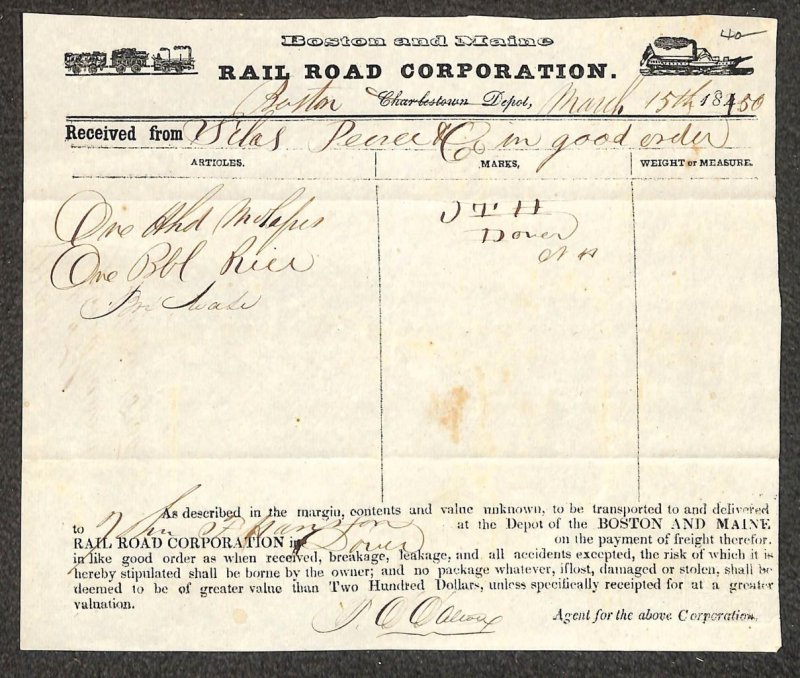 40
Boston and Maine
RAIL ROAD CORPORATION.
Boston Charlestown Depot, March 15th 1850
Received from Silas Peirce & Co in good order
ARTICLES. MARKS, WEIGHT or MEASURE.
One Hhd Molasses
One Bbl Rice
J F H
Dover
N H
As described in the margin, contents and value unknown, to be transported to and delivered
to John at the Depot of the BOSTON AND MAINE
RAIL ROAD CORPORATION in Dover on the payment of freight therefor.
in like good order as when received, breakage, leakage, and all accidents excepted, the risk of which it is
hereby stipulated shall be borne by the owner; and no package whatever, if lost, damaged or stolen, shall be
deemed to be of greater value than Two Hundred Dollars, unless specifically receipted for at a greater
valuation.
Agent for the above Corporation.